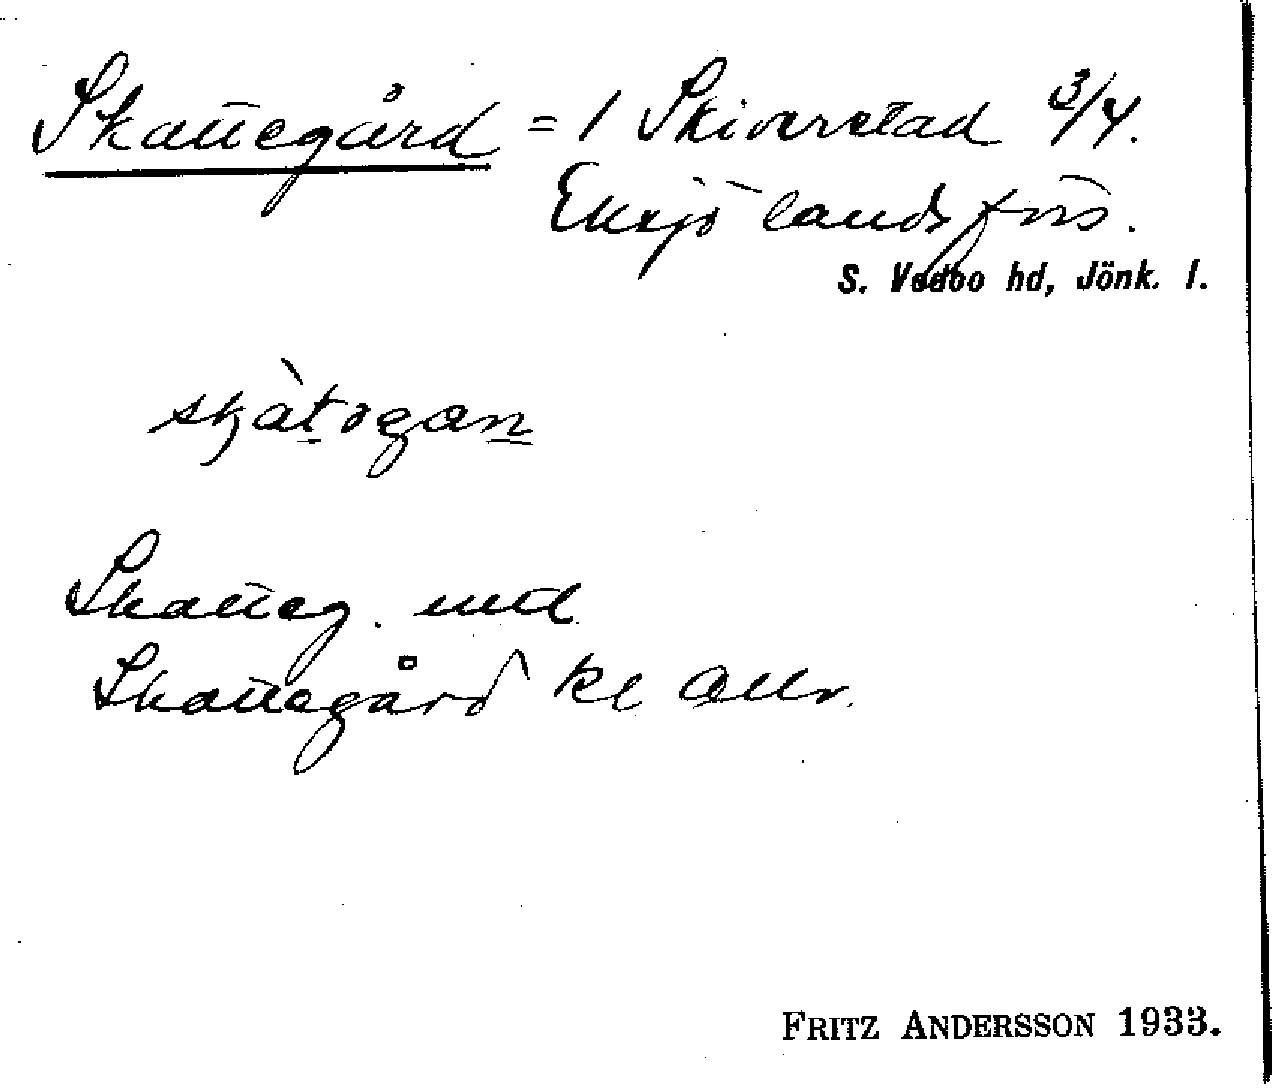 Skattegård = 1 Skiverstad 3/4.
Eksjö landsförs.
S. Vedbo hd, Jönk. l.
skàtəgan
Skatteg. md
Skattegård kl Allm.
FRITZ ANDERSSON 1933.